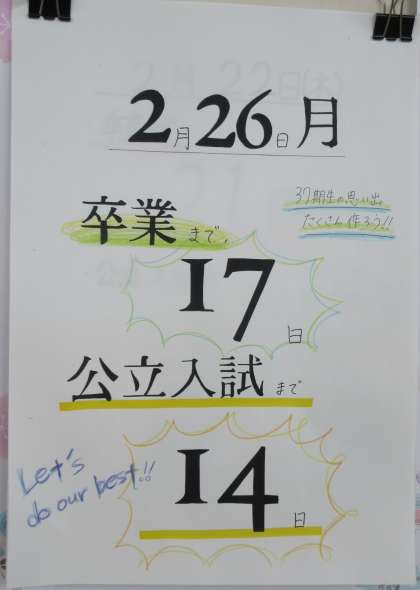 2月26日月
37期生の思い出
たくさん作ろう!!
卒業まで、
17日
公立入試まで
14日
Let's
do our best!!